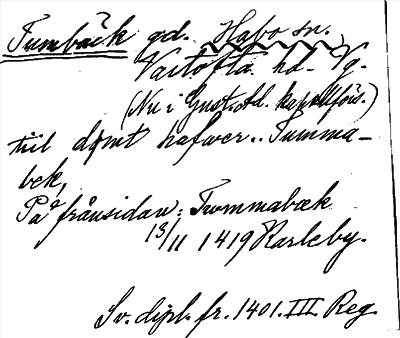 Tumbäck gd. Habo sn.
Vartofta hd. Vg.
(Nu i Gust. Ad. kapellförs.)
till dømt hafwer.. Tumma-
bek,
På frånsidan: Twmmabæk
13/11 1419 Karleby.
Sv. dipl. fr. 1401. III. Reg